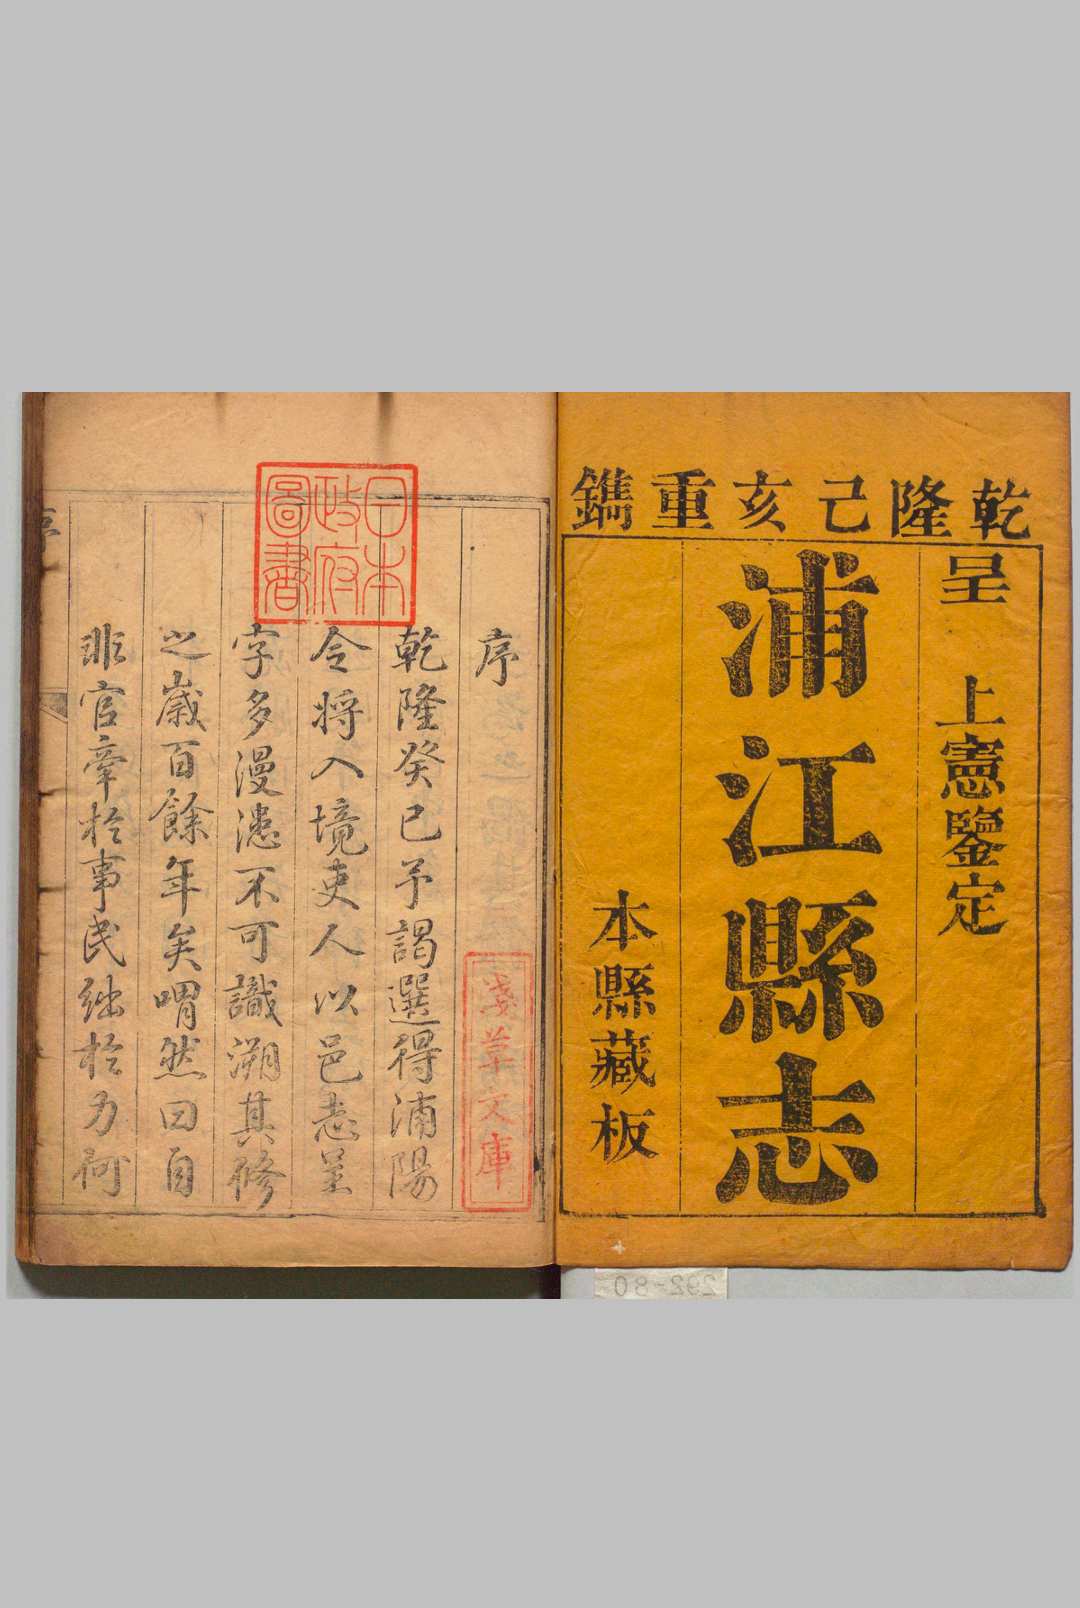 乾隆己亥重鐫
呈 上憲鑒定
浦江縣志
本縣藏板
序
乾隆癸巳予謁選得浦陽
令將入境吏人以邑志呈
字多漫漶不可識溯其修
之歲百餘年矣喟然曰自
非官牽於事民絀於力何
日本
政府
圖書
淺草文庫
292-80